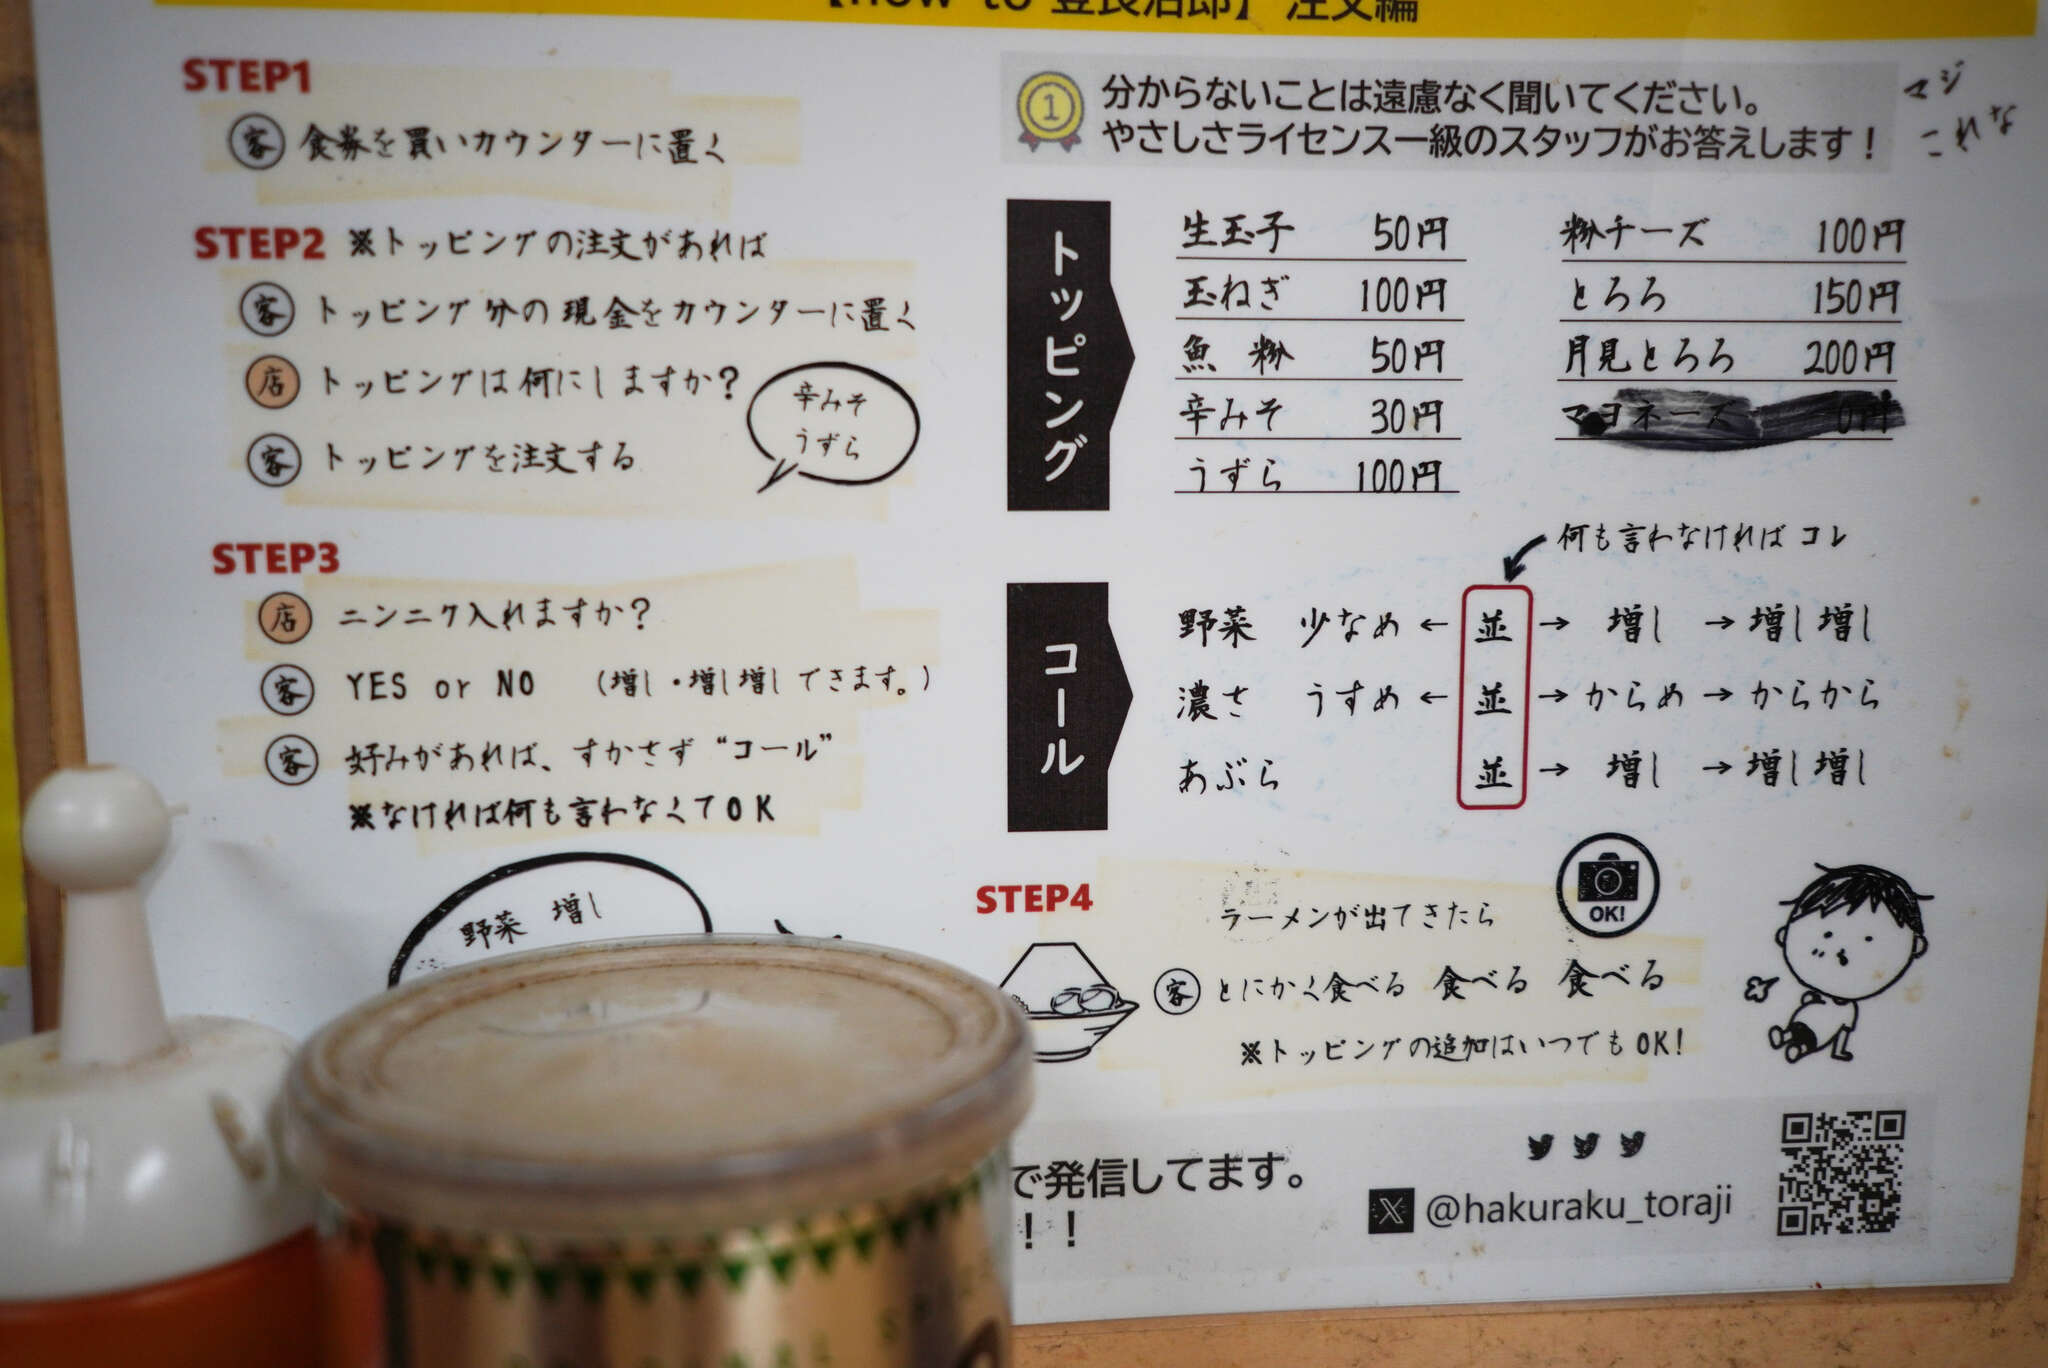 【How to 登良治郎】 注文編
STEP1
客 食券を買いカウンターに置く
STEP2 ※トッピングの注文があれば
客 トッピング分の現金をカウンターに置く
店 トッピングは何にしますか?
客 トッピングを注文する
辛みそ
うずら
STEP3
店 ニンニク入れますか?
客 YES or NO (増し・増し増しできます。)
客 好みがあれば、すかさず“コール”
※なければ何も言わなくてOK
野菜 増し
1 分からないことは遠慮なく聞いてください。
やさしさライセンス一級のスタッフがお答えします!
マジ
これな
トッピング
生玉子 50円
玉ねぎ 100円
魚粉 50円
辛みそ 30円
うずら 100円
粉チーズ 100円
とろろ 150円
月見とろろ 200円
マヨネーズ 0円
何も言わなければコレ
コール
野菜 少なめ ← 並 → 増し → 増し増し
濃さ うすめ ← 並 → からめ → からから
あぶら 並 → 増し → 増し増し
STEP4
ラーメンが出てきたら
OK!
客 とにかく食べる 食べる 食べる
※トッピングの追加はいつでもOK!
で発信してます。
!!
X @hakuraku_toraji